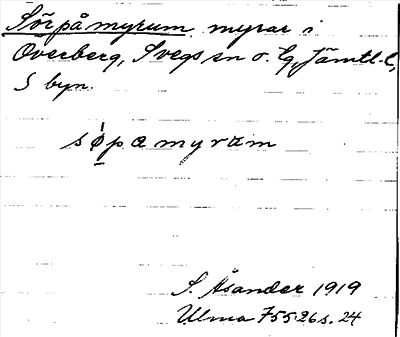 Sörpåmyrum, myrar i
Överberg, Svegs sn o. lg, Jämtl. l,
S byn.
søpamyrum
S. Åsander 1919
Ulma 755:26 s. 24